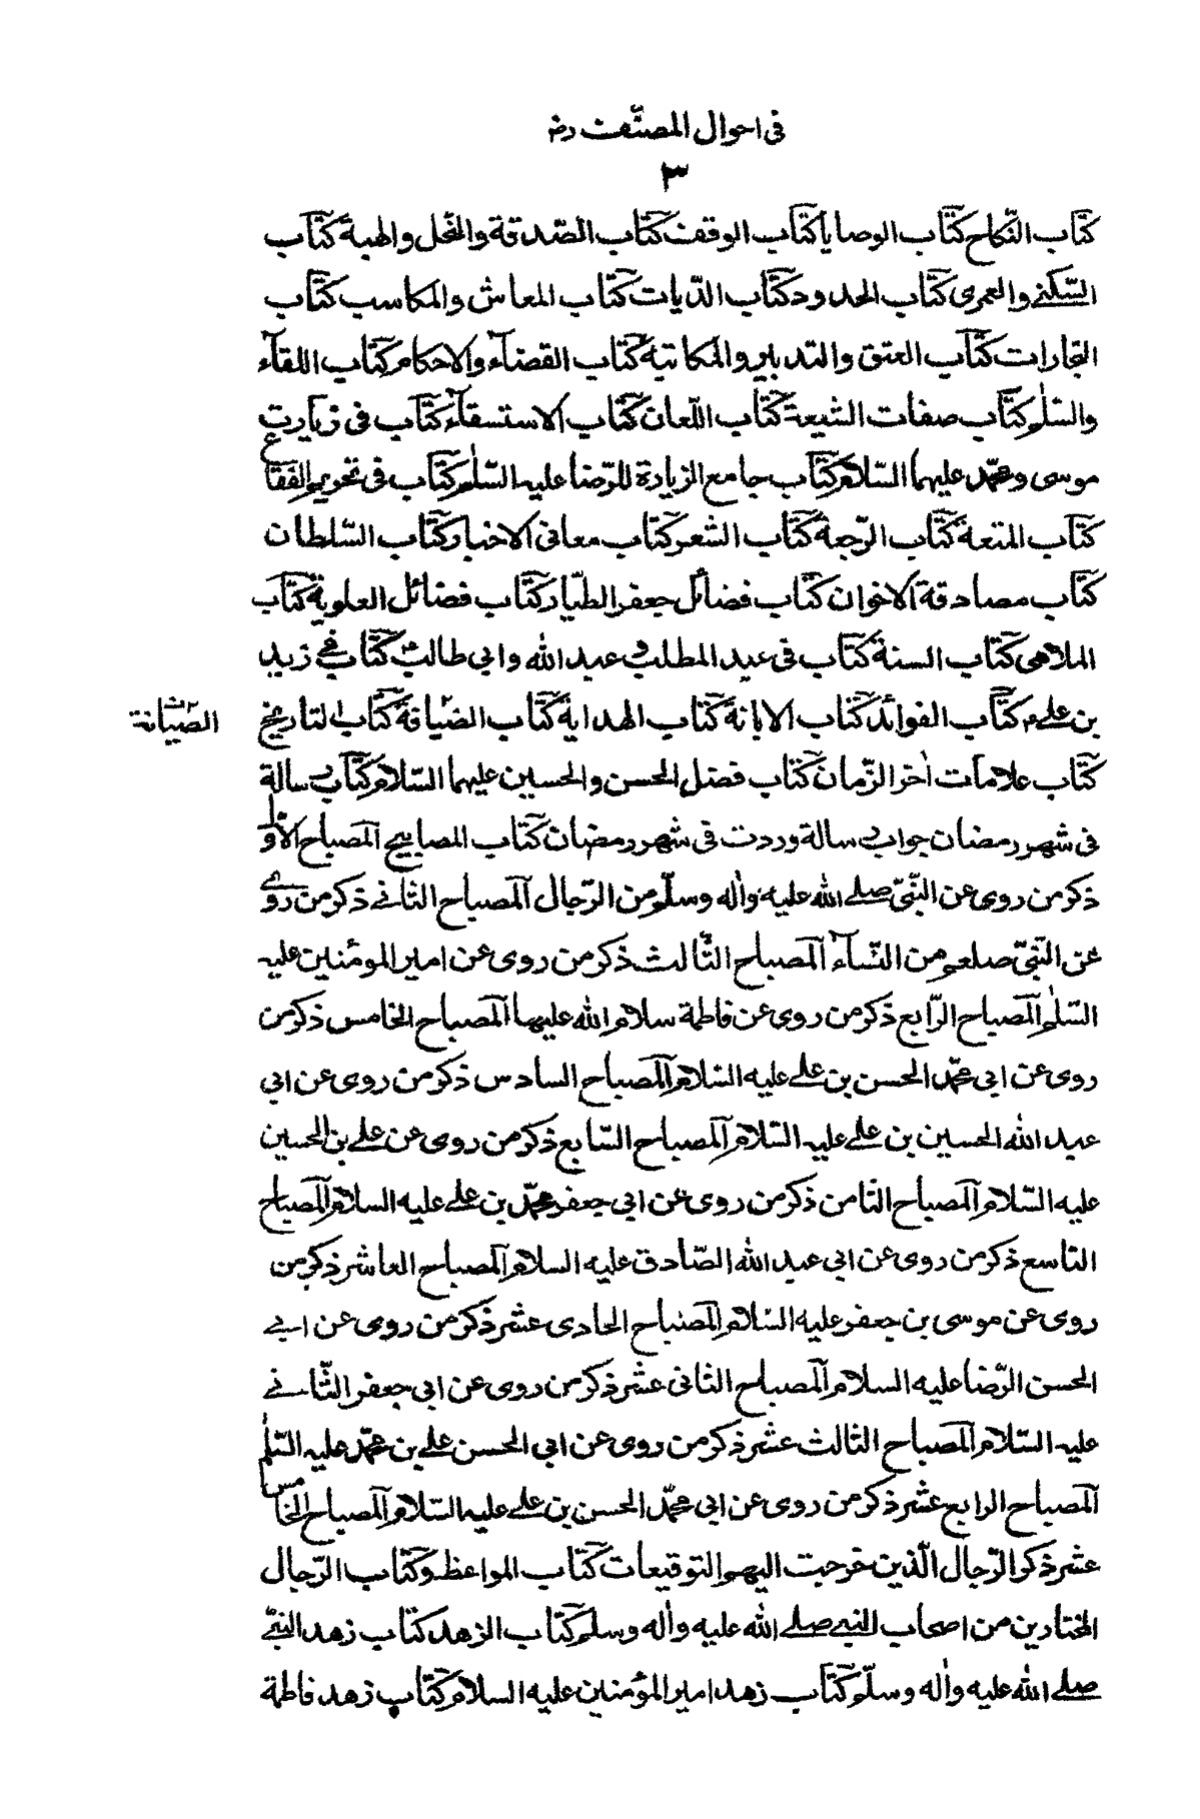 فى احوال المصنّف رض
٣
كتاب النّكاح كتاب الوصايا كتاب الوقف كتاب الصّدقة والنحل والهبة كتاب
السّكنى والعمرى كتاب الحدود كتاب الدّيات كتاب المعاش والمكاسب كتاب
التجارات كتاب العتق والتدبير والمكاتبة كتاب القضآء والاحكام كتاب اللقآء
والسّلم كتاب صفات الشيعة كتاب اللّعان كتاب الاستسقآء كتاب فى زيارت
موسى ومحمّد عليهما السّلام كتاب جامع الزيارة للرّضا عليه السّلم كتاب فى تحريم الفقاع
كتاب المتعة كتاب الرّجعة كتاب الشعر كتاب معانى الاخبار كتاب السّلطان
كتاب مصادقة الاخوان كتاب فضائل جعفر الطيّار كتاب فضائل العلوية كتاب
الملاهى كتاب السنة كتاب فى عبد المطلب وعبد الله وابى طالب كتاب فى زيد
بن على م كتاب الفوائد كتاب الابانة كتاب الهداية كتاب الضيافة كتاب التاريخ
الصّيانة
كتاب علامات اخر الزّمان كتاب فضل الحسن والحسين عليهما السّلام كتاب رسالة
فى شهر رمضان جواب رسالة وردت فى شهر رمضان كتاب المصابيح المصباح الاوّل
ذكر من روى عن النّبىّ صلى الله عليه واله وسلّم من الرّجال المصباح الثانى ذكر من روى
عن النّبىّ صلعم من النّسآء المصباح الثّالث ذكر من روى عن امير المومنين عليه
السّلم المصباح الرّابع ذكر من روى عن فاطمة سلام الله عليها المصباح الخامس ذكر من
روى عن ابى محمّد الحسن بن على عليه السّلام المصباح السادس ذكر من روى عن ابى
عبد الله الحسين بن على عليه السّلام المصباح السّابع ذكر من روى عن على بن الحسين
عليه السّلام المصباح الثامن ذكر من روى عن ابى جعفر محمّد بن على عليه السلام المصباح
التاسع ذكر من روى عن ابى عبد الله الصّادق عليه السلام المصباح العاشر ذكر من
روى عن موسى بن جعفر عليه السّلام المصباح الحادى عشر ذكر من روى عن ابى
الحسن الرّضا عليه السلام المصباح الثانى عشر ذكر من روى عن ابى جعفر الثّانى
عليه السّلام المصباح الثالث عشر ذكر من روى عن ابى الحسن على بن محمّد عليه السّلم
المصباح الرابع عشر ذكر من روى عن ابى محمّد الحسن بن على عليه السّلام المصباح الخامس
عشر ذكر الرّجال الّذين خرجت اليهم التوقيعات كتاب المواعظ وكتاب الرّجال
المختارين من اصحاب النبى صلى الله عليه واله وسلم كتاب الزهد كتاب زهد النبىّ
صلى الله عليه واله وسلّم كتاب زهد امير المؤمنين عليه السلام كتاب زهد فاطمة